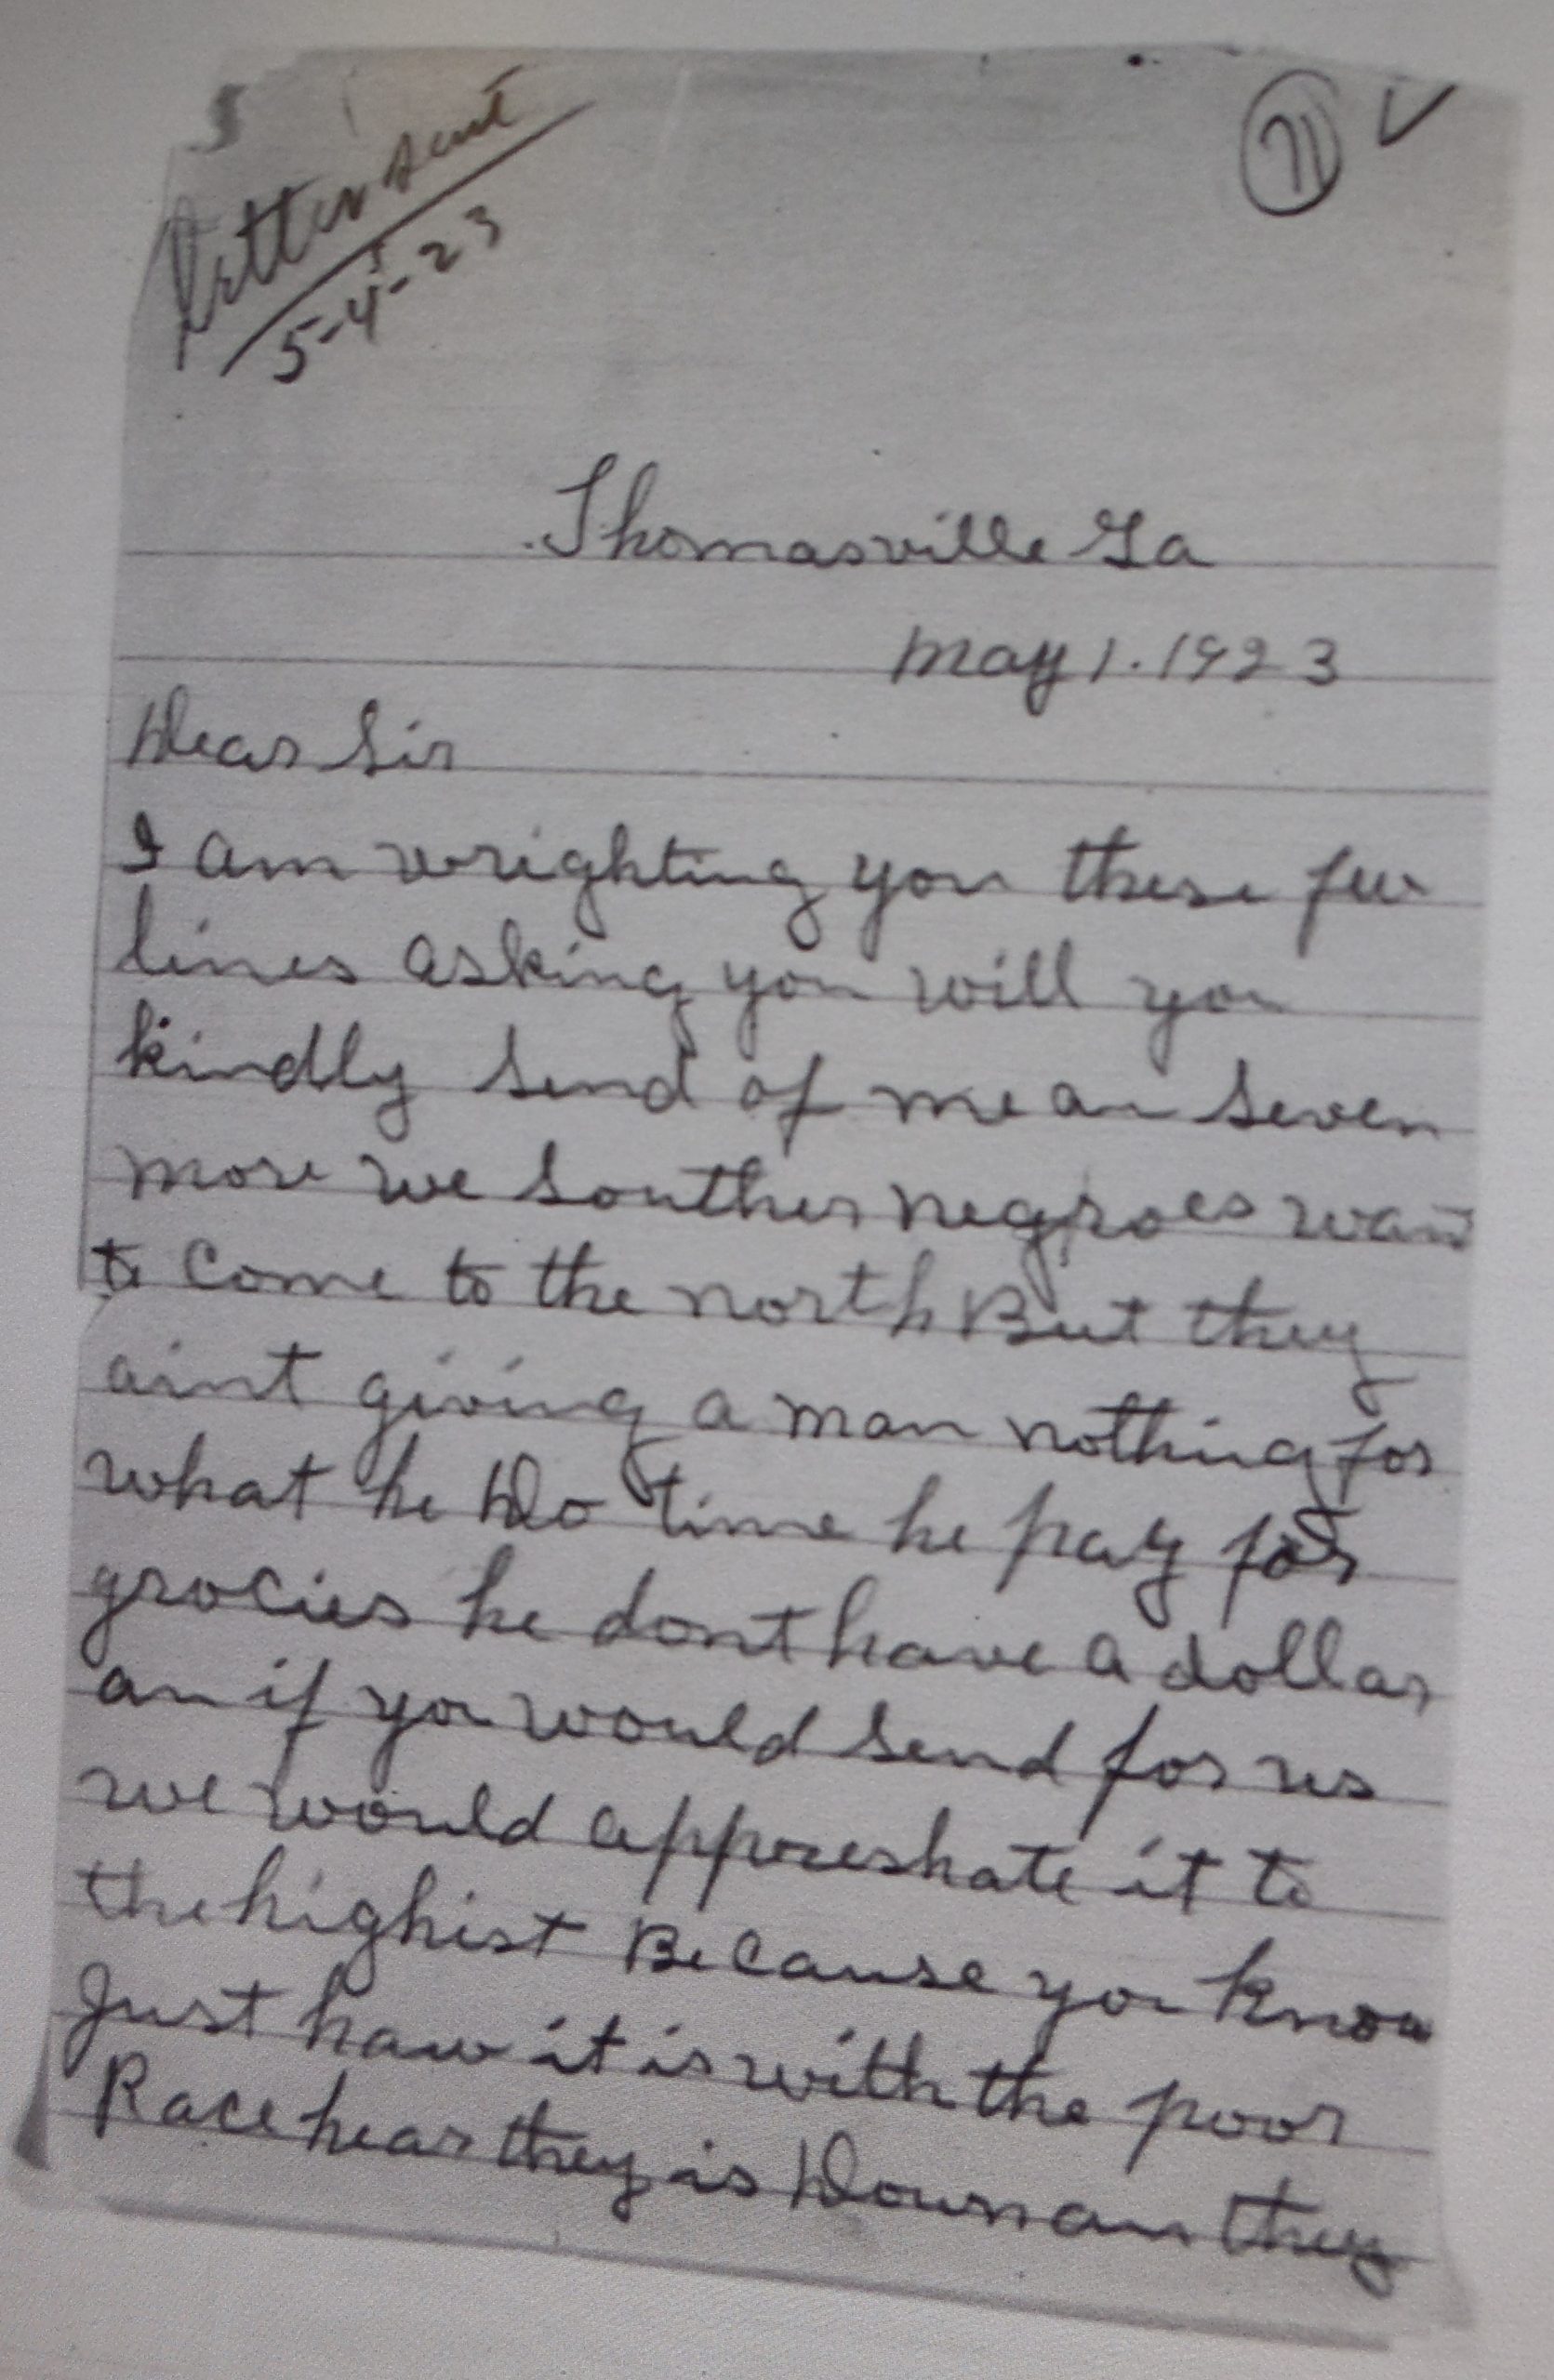 Letter sent
5-4-23
71
Thomasville Ga
May 1. 1923
Dear Sir
I am wrighting you these few
lines asking you will you
kindly send of me an seven
more we southern negroes want
to come to the north But they
aint giving a man nothing for
what he Do time he pay for
grocies he dont have a dollar
an if you would send for us
we would appreshate it to
the highist Because you know
Just haw it is with the poor
Race hear they is Down an they